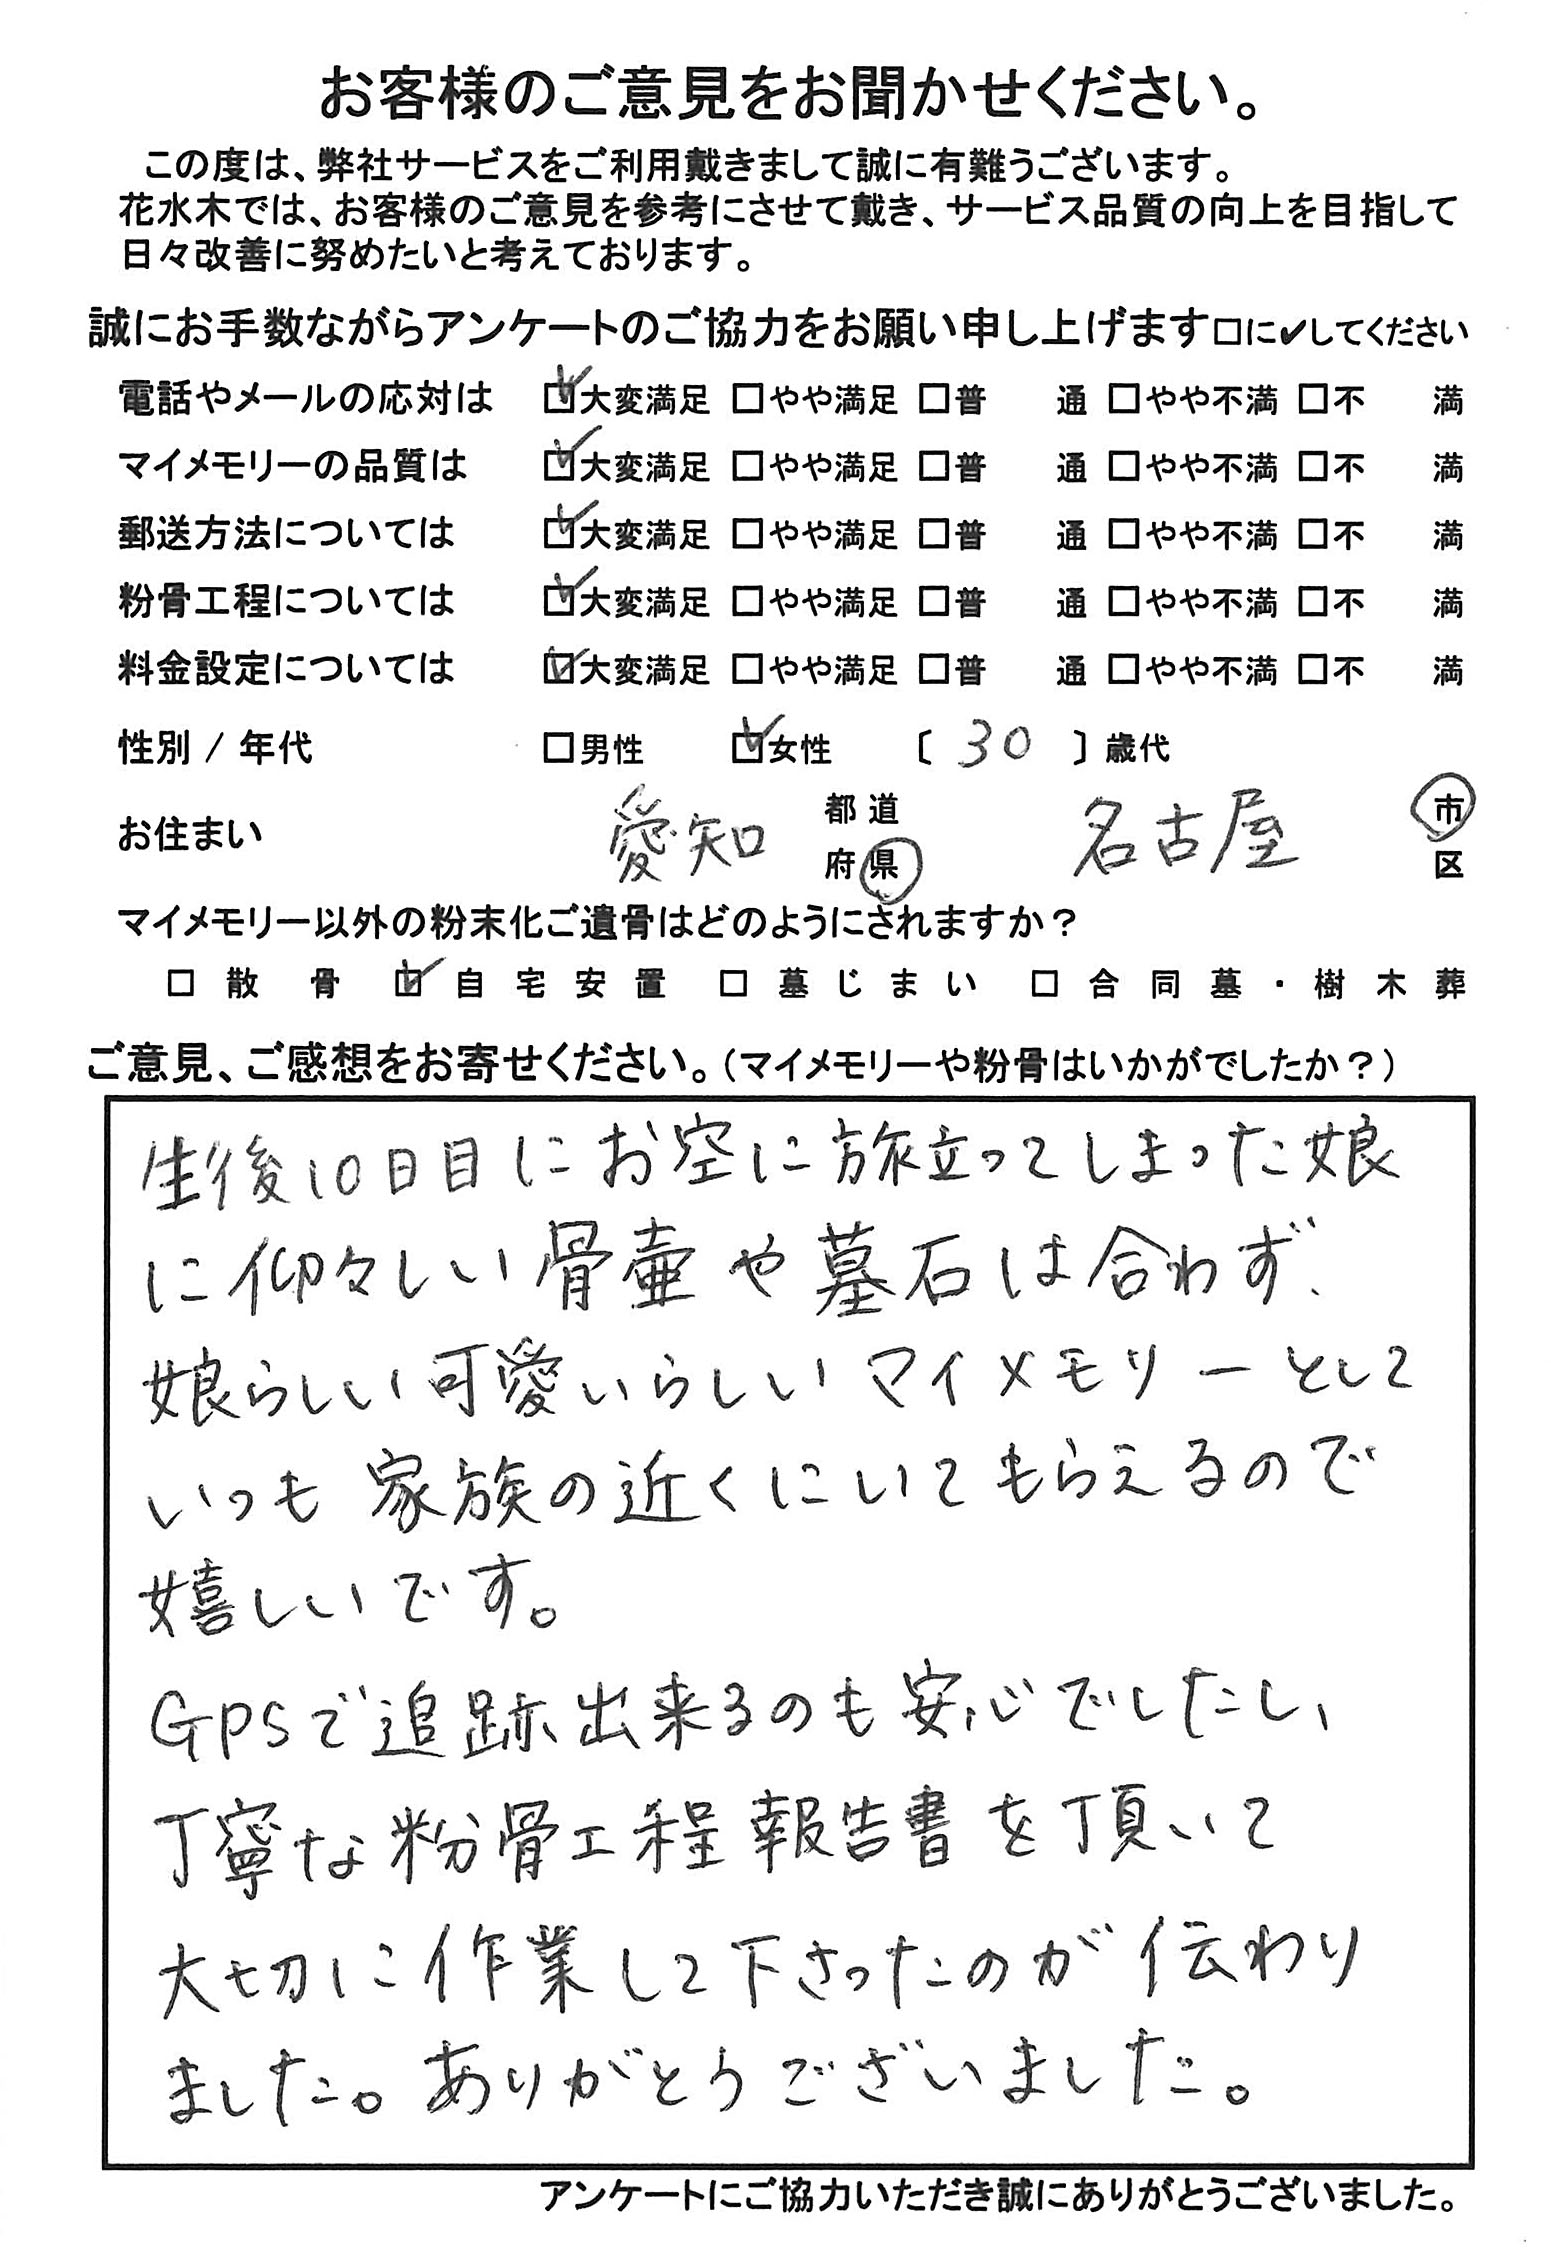 お客様のご意見をお聞かせください。
この度は、弊社サービスをご利用戴きまして誠に有難うございます。
花水木では、お客様のご意見を参考にさせて戴き、サービス品質の向上を目指して
日々改善に努めたいと考えております。
誠にお手数ながらアンケートのご協力をお願い申し上げます□に✔してください
電話やメールの応対は ☑大変満足 □やや満足 □普 通 □やや不満 □不 満
マイメモリーの品質は ☑大変満足 □やや満足 □普 通 □やや不満 □不 満
郵送方法については ☑大変満足 □やや満足 □普 通 □やや不満 □不 満
粉骨工程については ☑大変満足 □やや満足 □普 通 □やや不満 □不 満
料金設定については ☑大変満足 □やや満足 □普 通 □やや不満 □不 満
性別 / 年代 □男性 ☑女性 〔 30 〕歳代
お住まい 愛知 都道府県 名古屋 市区
マイメモリー以外の粉末化ご遺骨はどのようにされますか？
□ 散骨 ☑ 自宅安置 □ 墓じまい □ 合同墓・樹木葬
ご意見、ご感想をお寄せください。（マイメモリーや粉骨はいかがでしたか？）
生後10日目にお空に旅立ってしまった娘
に仰々しい骨壷や墓石は合わず、
娘らしい可愛いらしいマイメモリーとして
いつも家族の近くにいてもらえるので
嬉しいです。
GPSで追跡出来るのも安心でしたし、
丁寧な粉骨工程報告書を頂いて
大切に作業して下さったのが伝わり
ました。ありがとうございました。
アンケートにご協力いただき誠にありがとうございました。